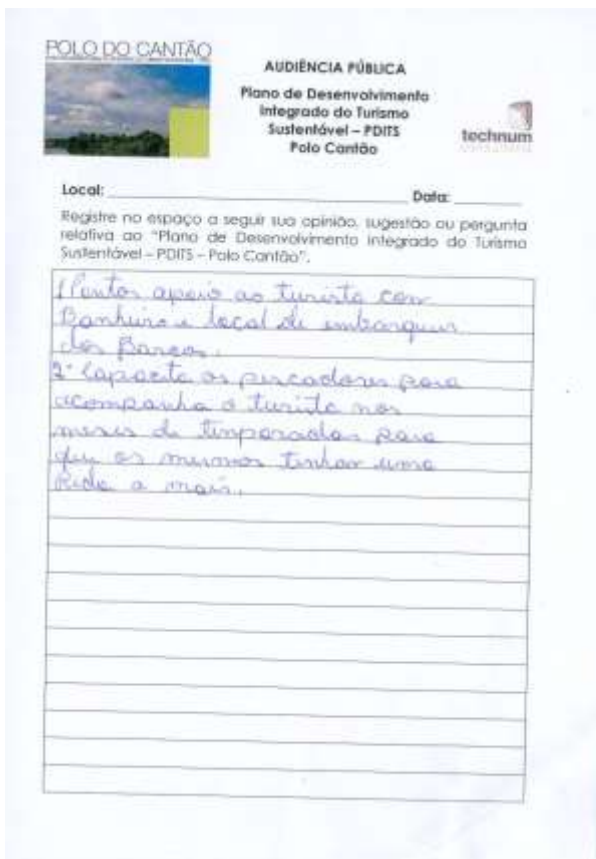 POLO DO CANTÃO
AUDIÊNCIA PÚBLICA
Plano de Desenvolvimento
Integrado do Turismo
Sustentável – PDITS
Polo Cantão
technum
Local: Data:
Registre no espaço a seguir sua opinião, sugestão ou pergunta
relativa ao "Plano de Desenvolvimento Integrado do Turismo
Sustentável – PDITS – Polo Cantão".
apoio ao turista com
Banheiro e local de embarques
dos Barcos.
2º Capacita os pescadores para
acompanha o turista nos
meses de temporadas para
que os mesmos tenham uma
a mais.